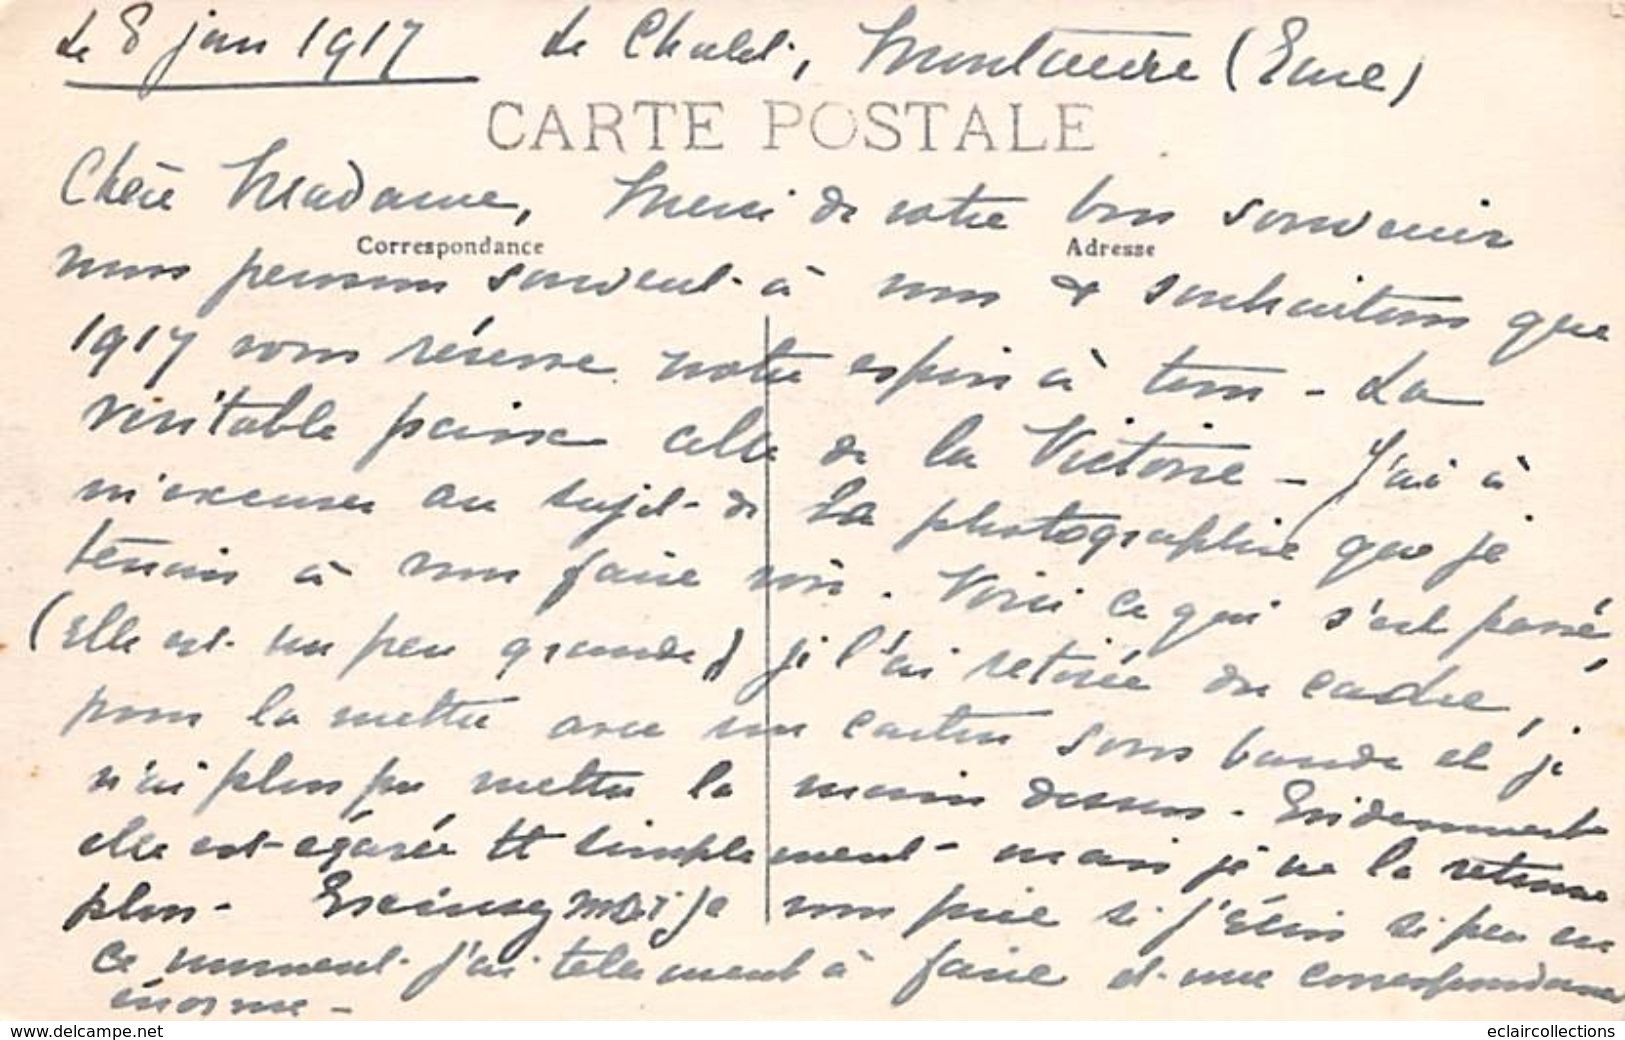 Le 8 jan 1917 Le Chalet, (Eure)
CARTE POSTALE
Chère Madame, Merci de votre bon souvenir
Correspondance Adresse
nous pensons souvent à vous & souhaitons que
1917 vous réserve notre espoir à tous - La
véritable paix celle de la Victoire - J'ai à
m'excuser au sujet de la photographie que je
tenais à vous faire voir. Voici ce qui s'est passé,
(Elle est un peu grande) je l'ai retirée du cadre,
pour la mettre avec un carton sous bande et je
n'ai plus pu mettre la main dessus - Evidemment
elle est égarée tt simplement - mais je ne la retrouve
plus - Excusez moi je vous prie si j'écris si peu en
ce moment j'ai tellement à faire et une correspondance
énorme -
www.delcampe.net
eclaircollections